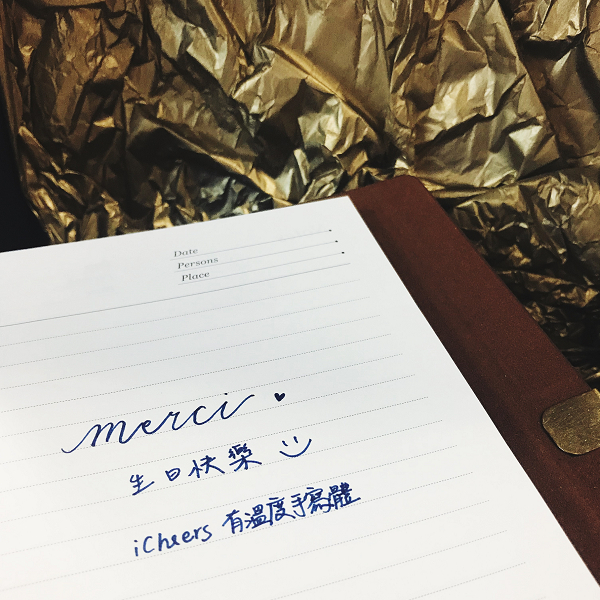 Date
Persons
Place
merci ♥
生日快樂 :)
iCheers 有溫度手寫體